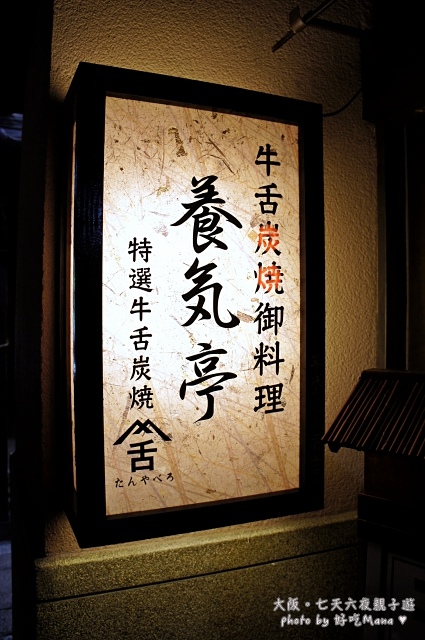 牛舌炭焼御料理
養気亭
特選牛舌炭焼
舌
たんやべろ
大阪・七天六夜親子遊
photo by 好吃Mana ♥